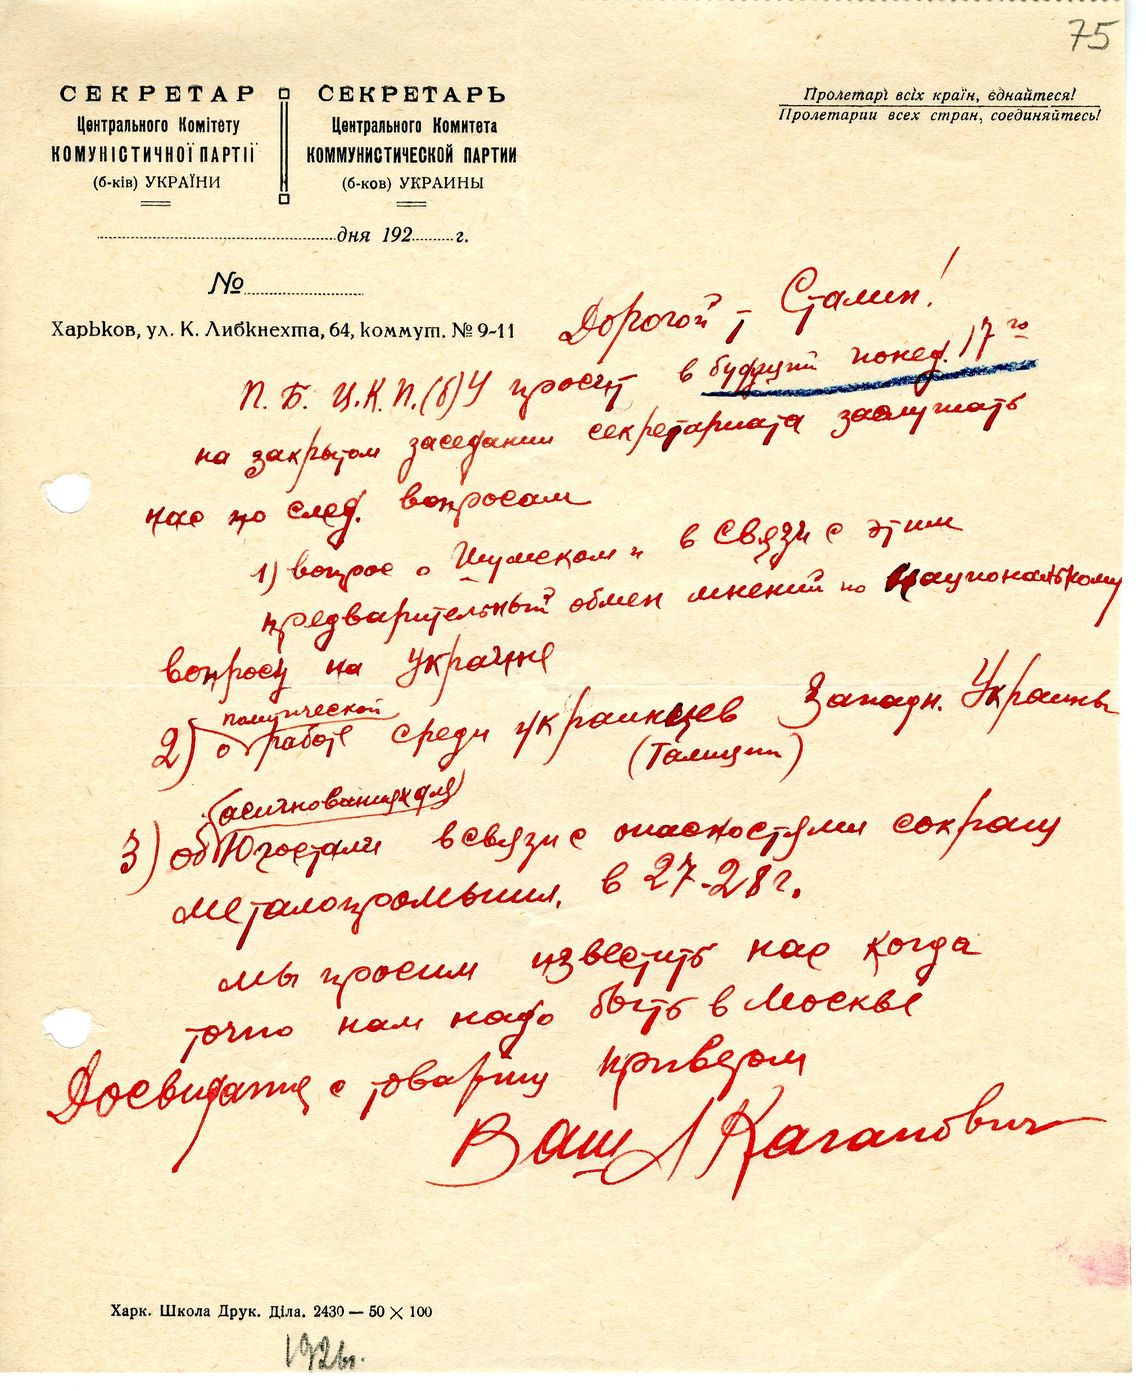 75
СЕКРЕТАР
Центрального Комітету
КОМУНІСТИЧНОЇ ПАРТІЇ
(б-ків) УКРАЇНИ
СЕКРЕТАРЬ
Центрального Комитета
КОММУНИСТИЧЕСКОЙ ПАРТИИ
(б-ков) УКРАИНЫ
Пролетарі всіх країн, єднайтеся!
Пролетарии всех стран, соединяйтесь!
дня 192 г.
№
Харьков, ул. К. Либкнехта, 64, коммут. № 9-11
Дорогой т Сталин!
П.Б. Ц.К.П.(б)У просит в будущий понед. 17го
на закрытом заседании секретариата заслушать
нас по след. вопросам
1) вопрос о Шумском и в связи с этим
предварительный обмен мнений по национальному
вопросу на Украине
политической
2) о работе среди украинцев Западн. Украины
(Галиции)
(асигнованиях для)
3) об Югостали в связи с опасностями сокращ
металопромышл. в 27-28 г.
мы просим известить нас когда
точно нам надо быть в Москве
Досвидание с товарищ приветом
Ваш Л Каганович
Харк. Школа Друк. Діла. 2430 — 50 × 100
1926г.